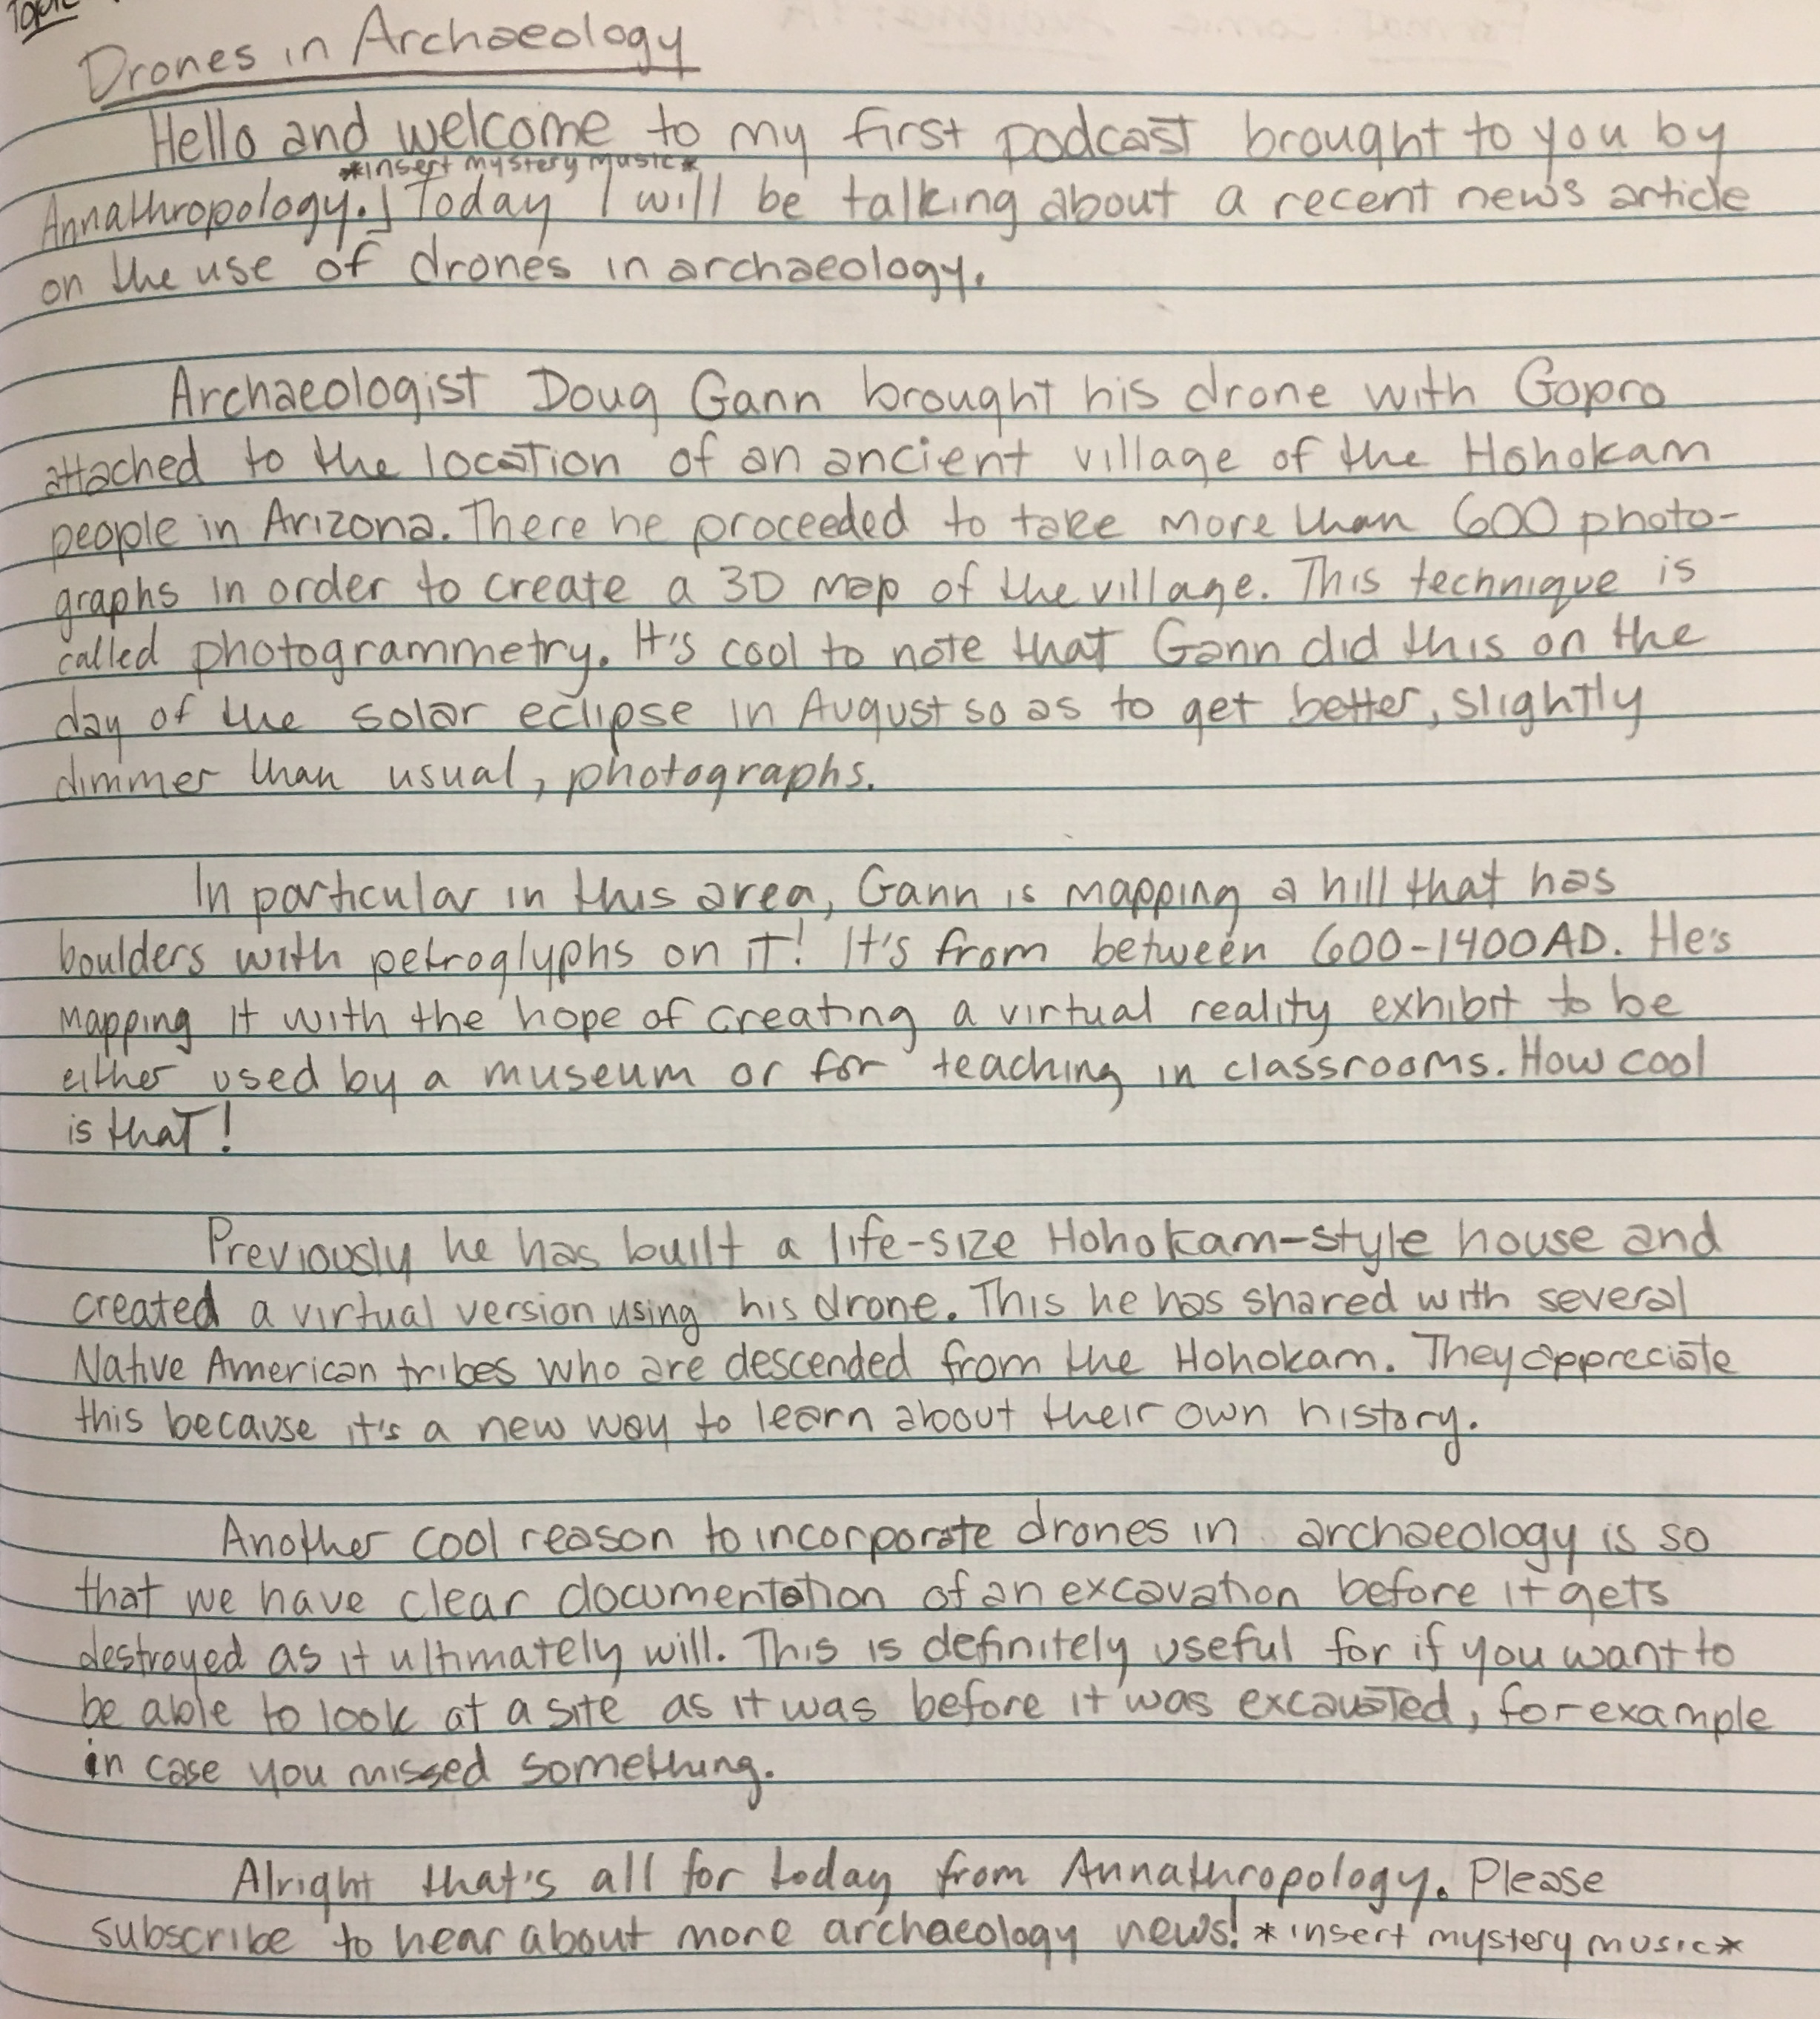 Topic
Drones in Archaeology
Hello and welcome to my first podcast brought to you by
*insert mystery music*
Annathropology. Today I will be talking about a recent news article
on the use of drones in archaeology.
Archaeologist Doug Gann brought his drone with Gopro
attached to the location of an ancient village of the Hohokam
people in Arizona. There he proceeded to take more than 600 photo-
graphs in order to create a 3D map of the village. This technique is
called photogrammetry. It's cool to note that Gann did this on the
day of the solar eclipse in August so as to get better, slightly
dimmer than usual, photographs.
In particular in this area, Gann is mapping a hill that has
boulders with petroglyphs on it! It's from between 600-1400AD. He's
mapping it with the hope of creating a virtual reality exhibit to be
either used by a museum or for teaching in classrooms. How cool
is that!
Previously he has built a life-size Hohokam-style house and
created a virtual version using his drone. This he has shared with several
Native American tribes who are descended from the Hohokam. They appreciate
this because it's a new way to learn about their own history.
Another cool reason to incorporate drones in archaeology is so
that we have clear documentation of an excavation before it gets
destroyed as it ultimately will. This is definitely useful for if you want to
be able to look at a site as it was before it was excavated, for example
in case you missed something.
Alright that's all for today from Annathropology. Please
subscribe to hear about more archaeology news! *insert mystery music*